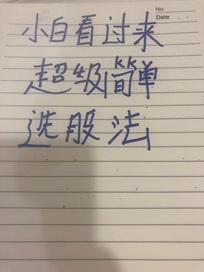 No
Date
小白看过来
超级简单
选股法